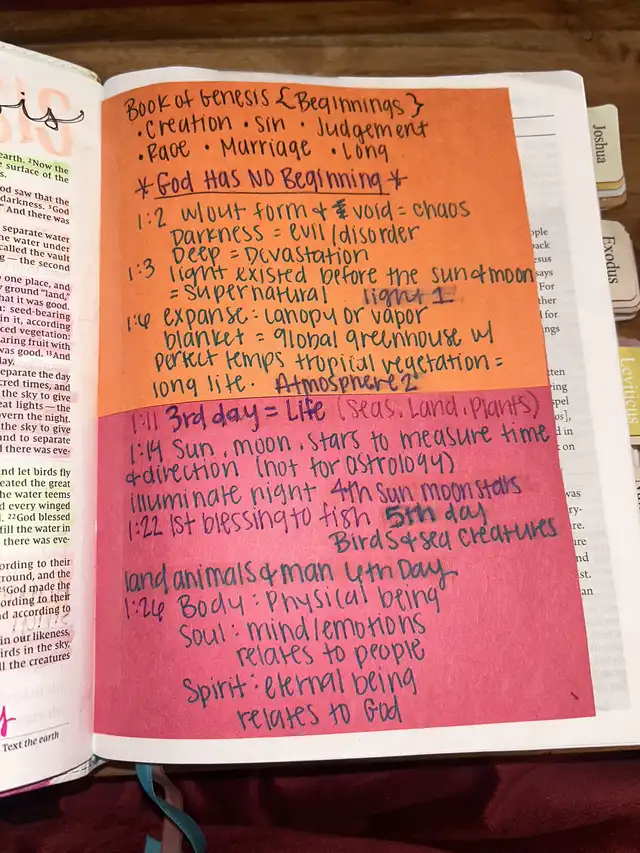 is
earth. ²Now the
e surface of the
od saw that the
darkness. ⁵God
" And there was
separate water
he water under
called the vault
g—the second
o one place, and
y ground "land,"
hat it was good.
: seed-bearing
in it, according
ced vegetation:
aring fruit with
was good. ¹³And
day.
eparate the day
cred times, and
the sky to give
eat lights—the
overn the night.
the sky to give
nd to separate
d there was eve-
nd let birds fly
eated the great
he water teems
d every winged
. ²²God blessed
fill the water in
there was eve-
ording to their
round, and the
God made the
ording to their
d according to
in our likeness,
irds in the sky,
ll the creatures
Text the earth
Book of Genesis {Beginnings}
• Creation • Sin • Judgement
• Race • Marriage • Long
*God Has No Beginning*
1:2 w/out form & void = chaos
Darkness = evil/disorder
Deep = Devastation
1:3 light existed before the sun & moon
= supernatural light 1
1:6 expanse: canopy or vapor
blanket = global greenhouse w/
perfect temps tropical vegetation =
long life. Atmosphere 2
1:11 3rd day = Life (seas, Land, Plants)
1:14 Sun, moon, stars to measure time
& direction (not for astrology)
illuminate night 4th Sun moon stars
1:22 1st blessing to fish 5th day
Birds & sea creatures
land animals & man 6th Day
1:26 Body: Physical being
Soul: mind/emotions
relates to people
Spirit: eternal being
relates to God
Joshua
Exodus
Leviticus
ople
back
esus
says
For
ther
ngs
tten
ring
spel
os],
d in
on
was
ry-
re.
nd
ist.
an